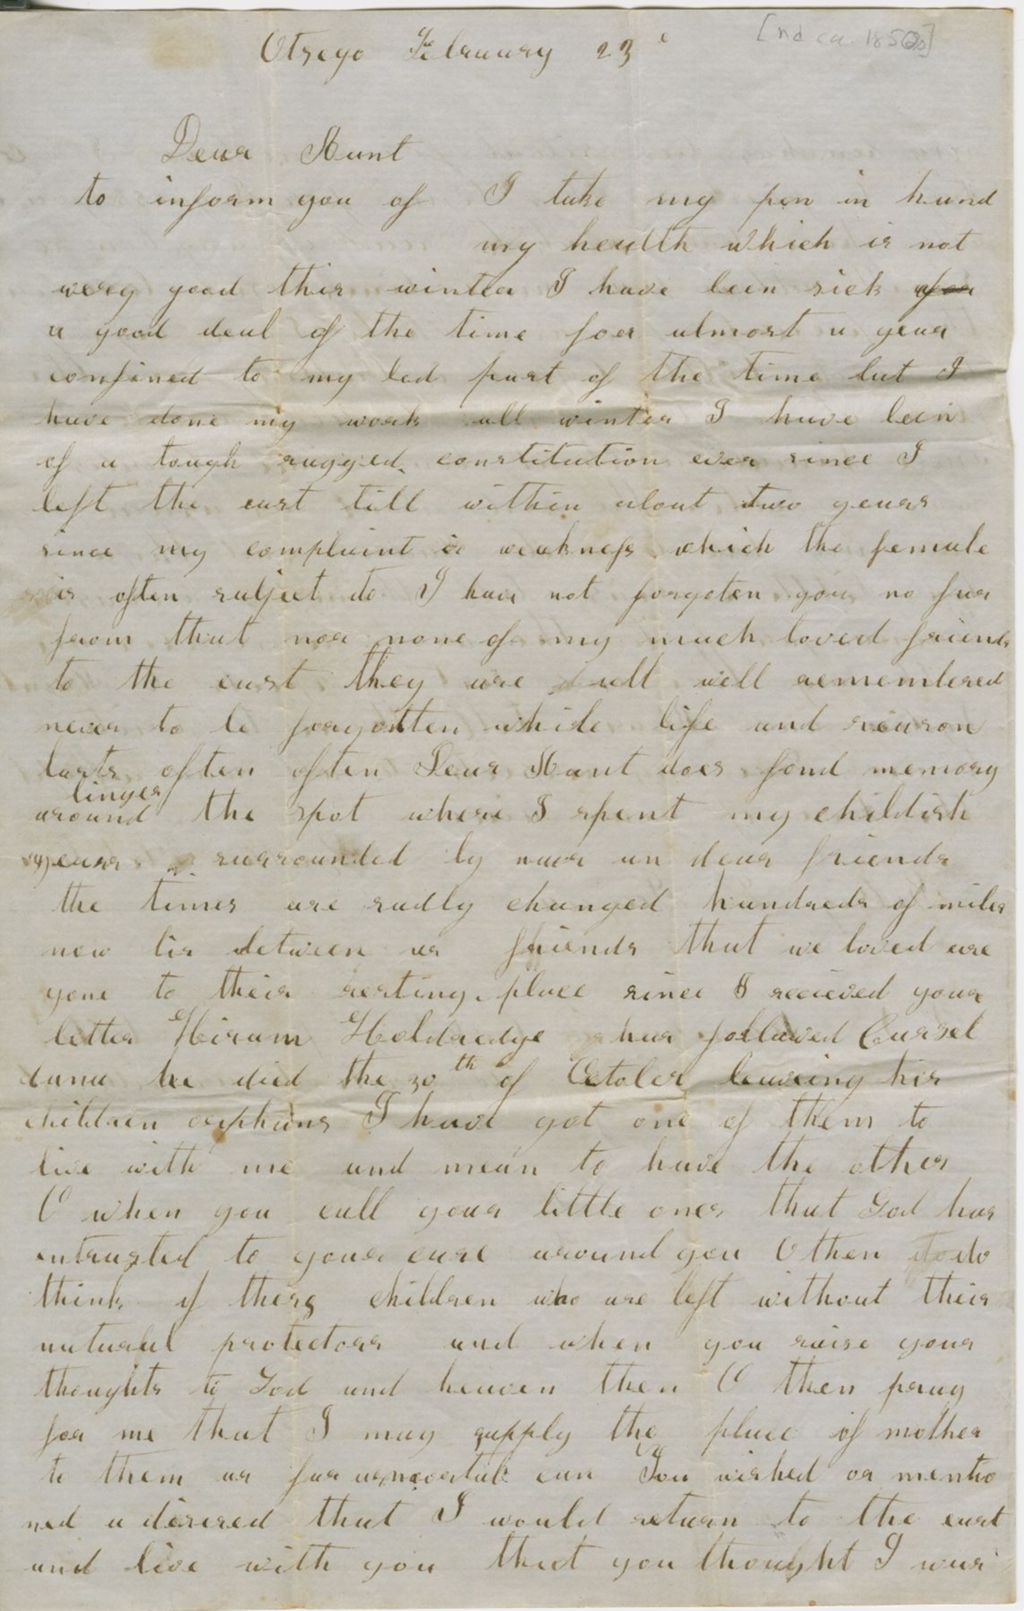 [nd ca. 1850s]
Otsego February 23
Dear Aunt
to inform you of I take my pen in hand
my health which is not
verey good this winter I have been sick for
a good deal of the time for almost a year
confined to my bed part of the time but I
have done my work all winter I have been
of a tough rugged constitution ever since I
left the east till within about two years
since my complaint is weakness which the female
is often subject to I have not forgoten you no far
from that nor none of my much loved friends
to the east they are all well remembered
never to be forgotten while life and reason
lasts often often Dear Aunt does fond memory
linger
around the spot where I spent my childish
years surrounded by near an dear friends
the times are sadly changed hundreds of miles
now lis between us friends that we loved are
gone to their resting place since I recieved your
letter Hiram Holdredge has followed Cursel
dana he died the 30th of October leaveing his
children orphans I have got one of them to
live with me and mean to have the other
O when you call your little ones that God has
intrusted to your care around you O then do
think of thers children who are left without their
natural protectors and when you raise your
thoughts to God and heaven then O then pray
for me that I may supply the place of mother
to them as far as mortal can You wished or mentio
ned a desired that I would return to the east
and live with you that you thought I was